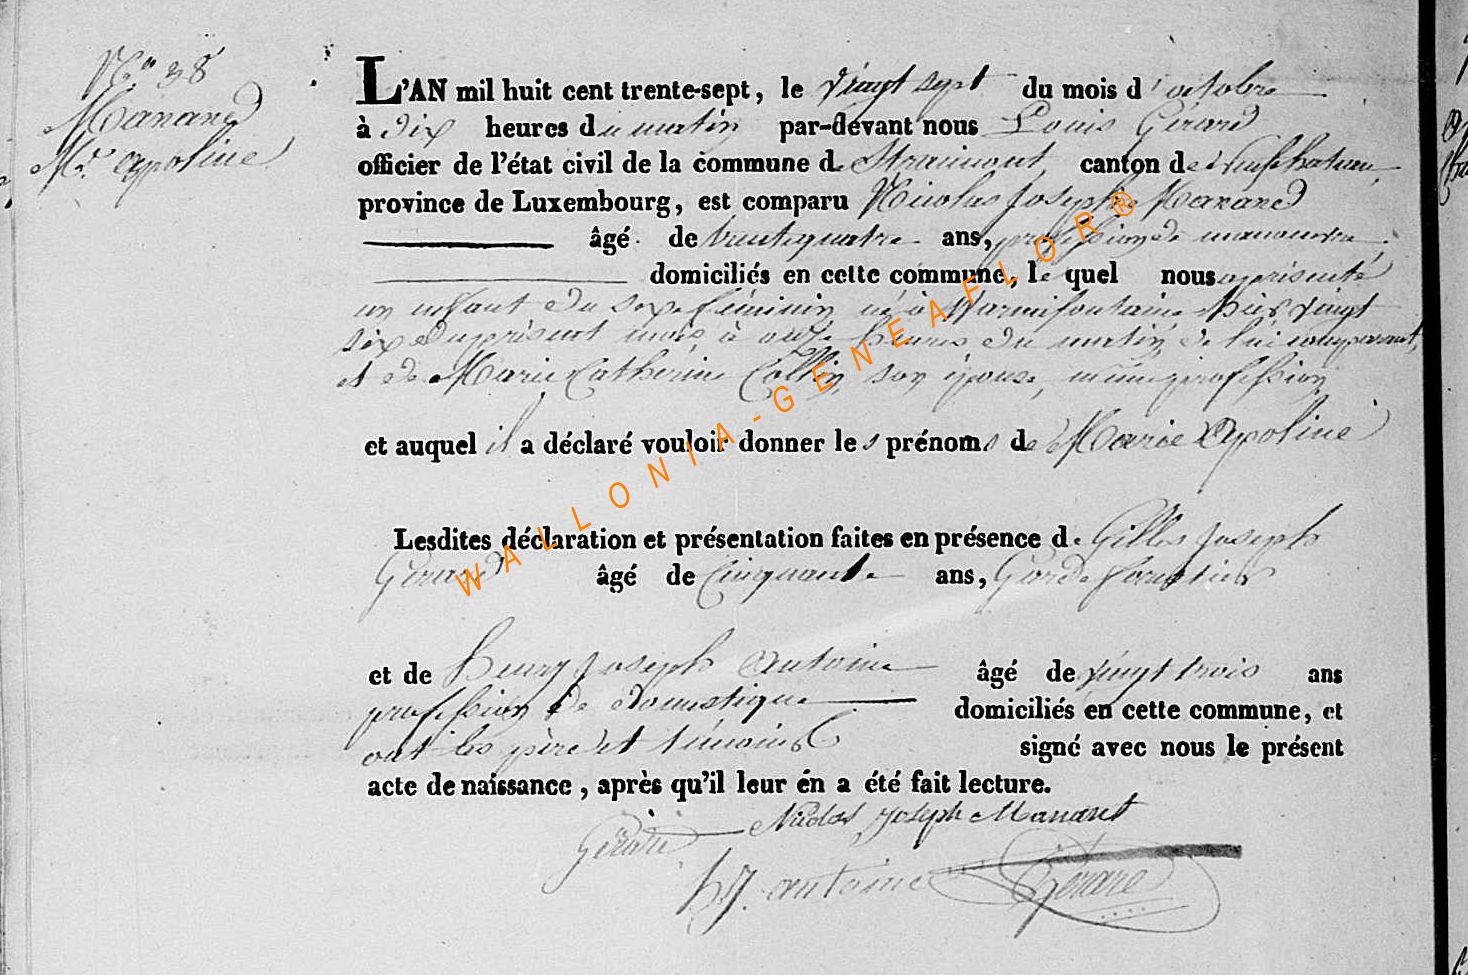 N° 38
Manand
Me apoline
L'AN mil huit cent trente-sept, le vingt sept du mois d'octobre
à dix heures du matin par-devant nous Louis Gérard
officier de l'état civil de la commune de Straimont, canton de neufchateau,
province de Luxembourg, est comparu Nicolas Joseph Manand
âgé de trente quatre ans, profession de manouvre
domiciliés en cette commune, le quel nous a présenté
un enfant du sexe féminin né à Warmifontaine hier vingt
six du présent mois à onze heures du matin, de lui comparant,
et de Marie Catherine Collin, son épouse, même profession,
et auquel il a déclaré vouloir donner les prénoms de Marie Apoline
Lesdites déclaration et présentation faites en présence de Gilles Joseph
Gérard âgé de Cinquante ans, Garde forestier
et de henry Joseph Antoine âgé de vingt trois ans
profession de domestique domiciliés en cette commune, et
ont les père et témoins signé avec nous le présent
acte de naissance, après qu'il leur én a été fait lecture.
Gérard Nicolas Joseph Manant
hJ. antoine Gérard
WALLONIA-GENEAFLOR®